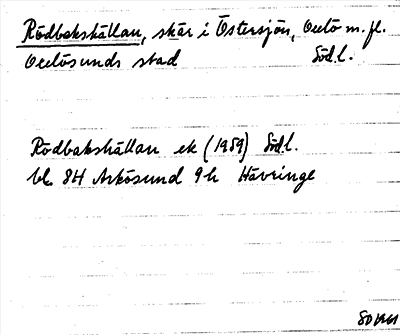 Rödbakshällan, skär i Östersjön, Oxelö m. fl.
Oxelösunds stad Södl.
Rödbakshällan ek (1959) Södl.
bl. 8H Arkösund 9h Hävringe